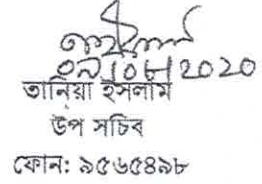 ০৯।০৮।২০২০
তানিয়া ইসলাম
উপ সচিব
ফোন: ৯৫৬৫৪৯৮